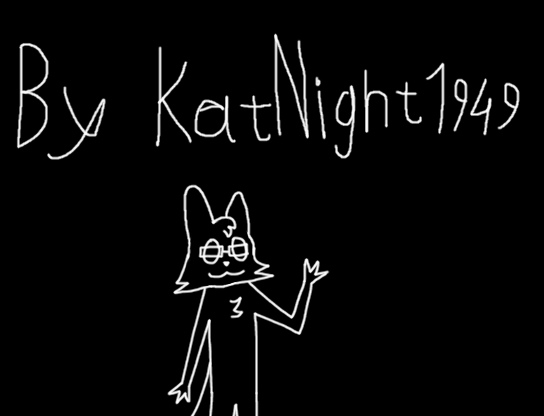 By KatNight1949